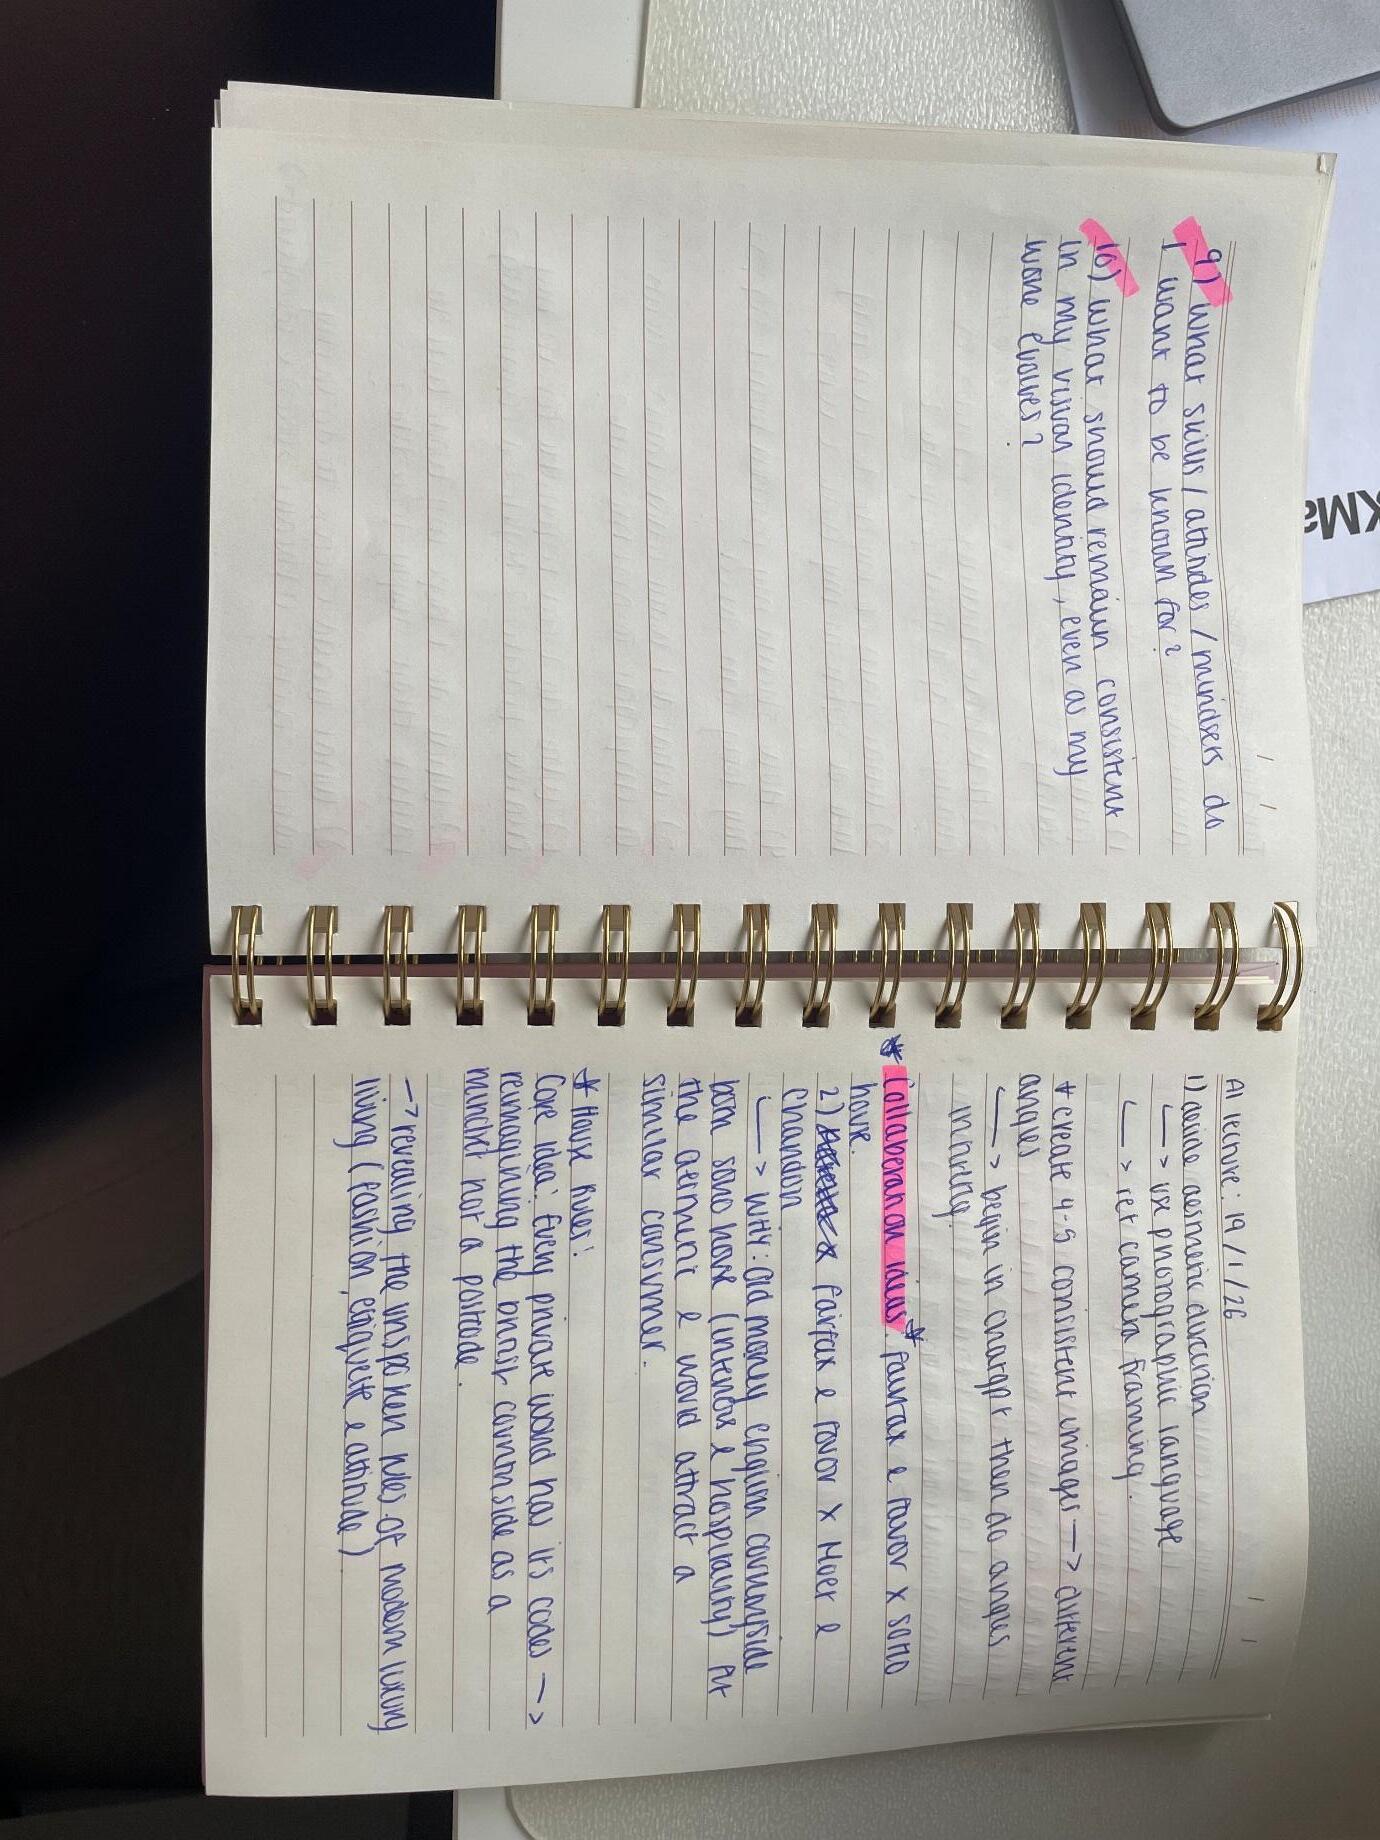 9) What skills / attitudes / mindsets do
I want to be known for?
10) What should remain consistent
in my visual identity, even as my
work evolves?
AI lecture: 19/1/26
1) decide aesthetic direction
→ use photographic language
→ ret camera framing.
* create 4-5 consistent images → different
angles
→ begin in chatgpt then do angles
in
* Collaberation ideas * Fairfax & Favor x Soho
house.
2) Fairfax & Favor x Moet &
Chandon
→ WHY: Old money english countryside
both soho house (interiors & hospitality) fit
the aethetic & would attract a
similar consumer.
* House Rules:
Core idea: Every private world has its codes →
reimagining the british countryside as a
mindset not a postcode.
→ revealing the unspoken rules of modern luxury
living (fashion, etiquette & attitude)
XMa